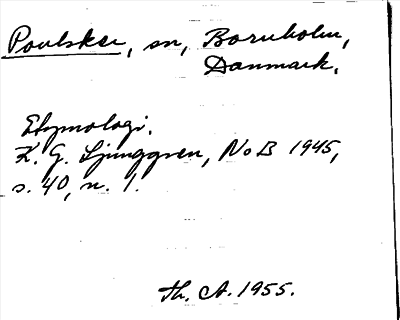 Poulsker, sn, Bornholm,
Danmark.
Etymologi.
K. G. Ljunggren, NoB 1945,
s. 40, n. 1.
Th. A. 1955.